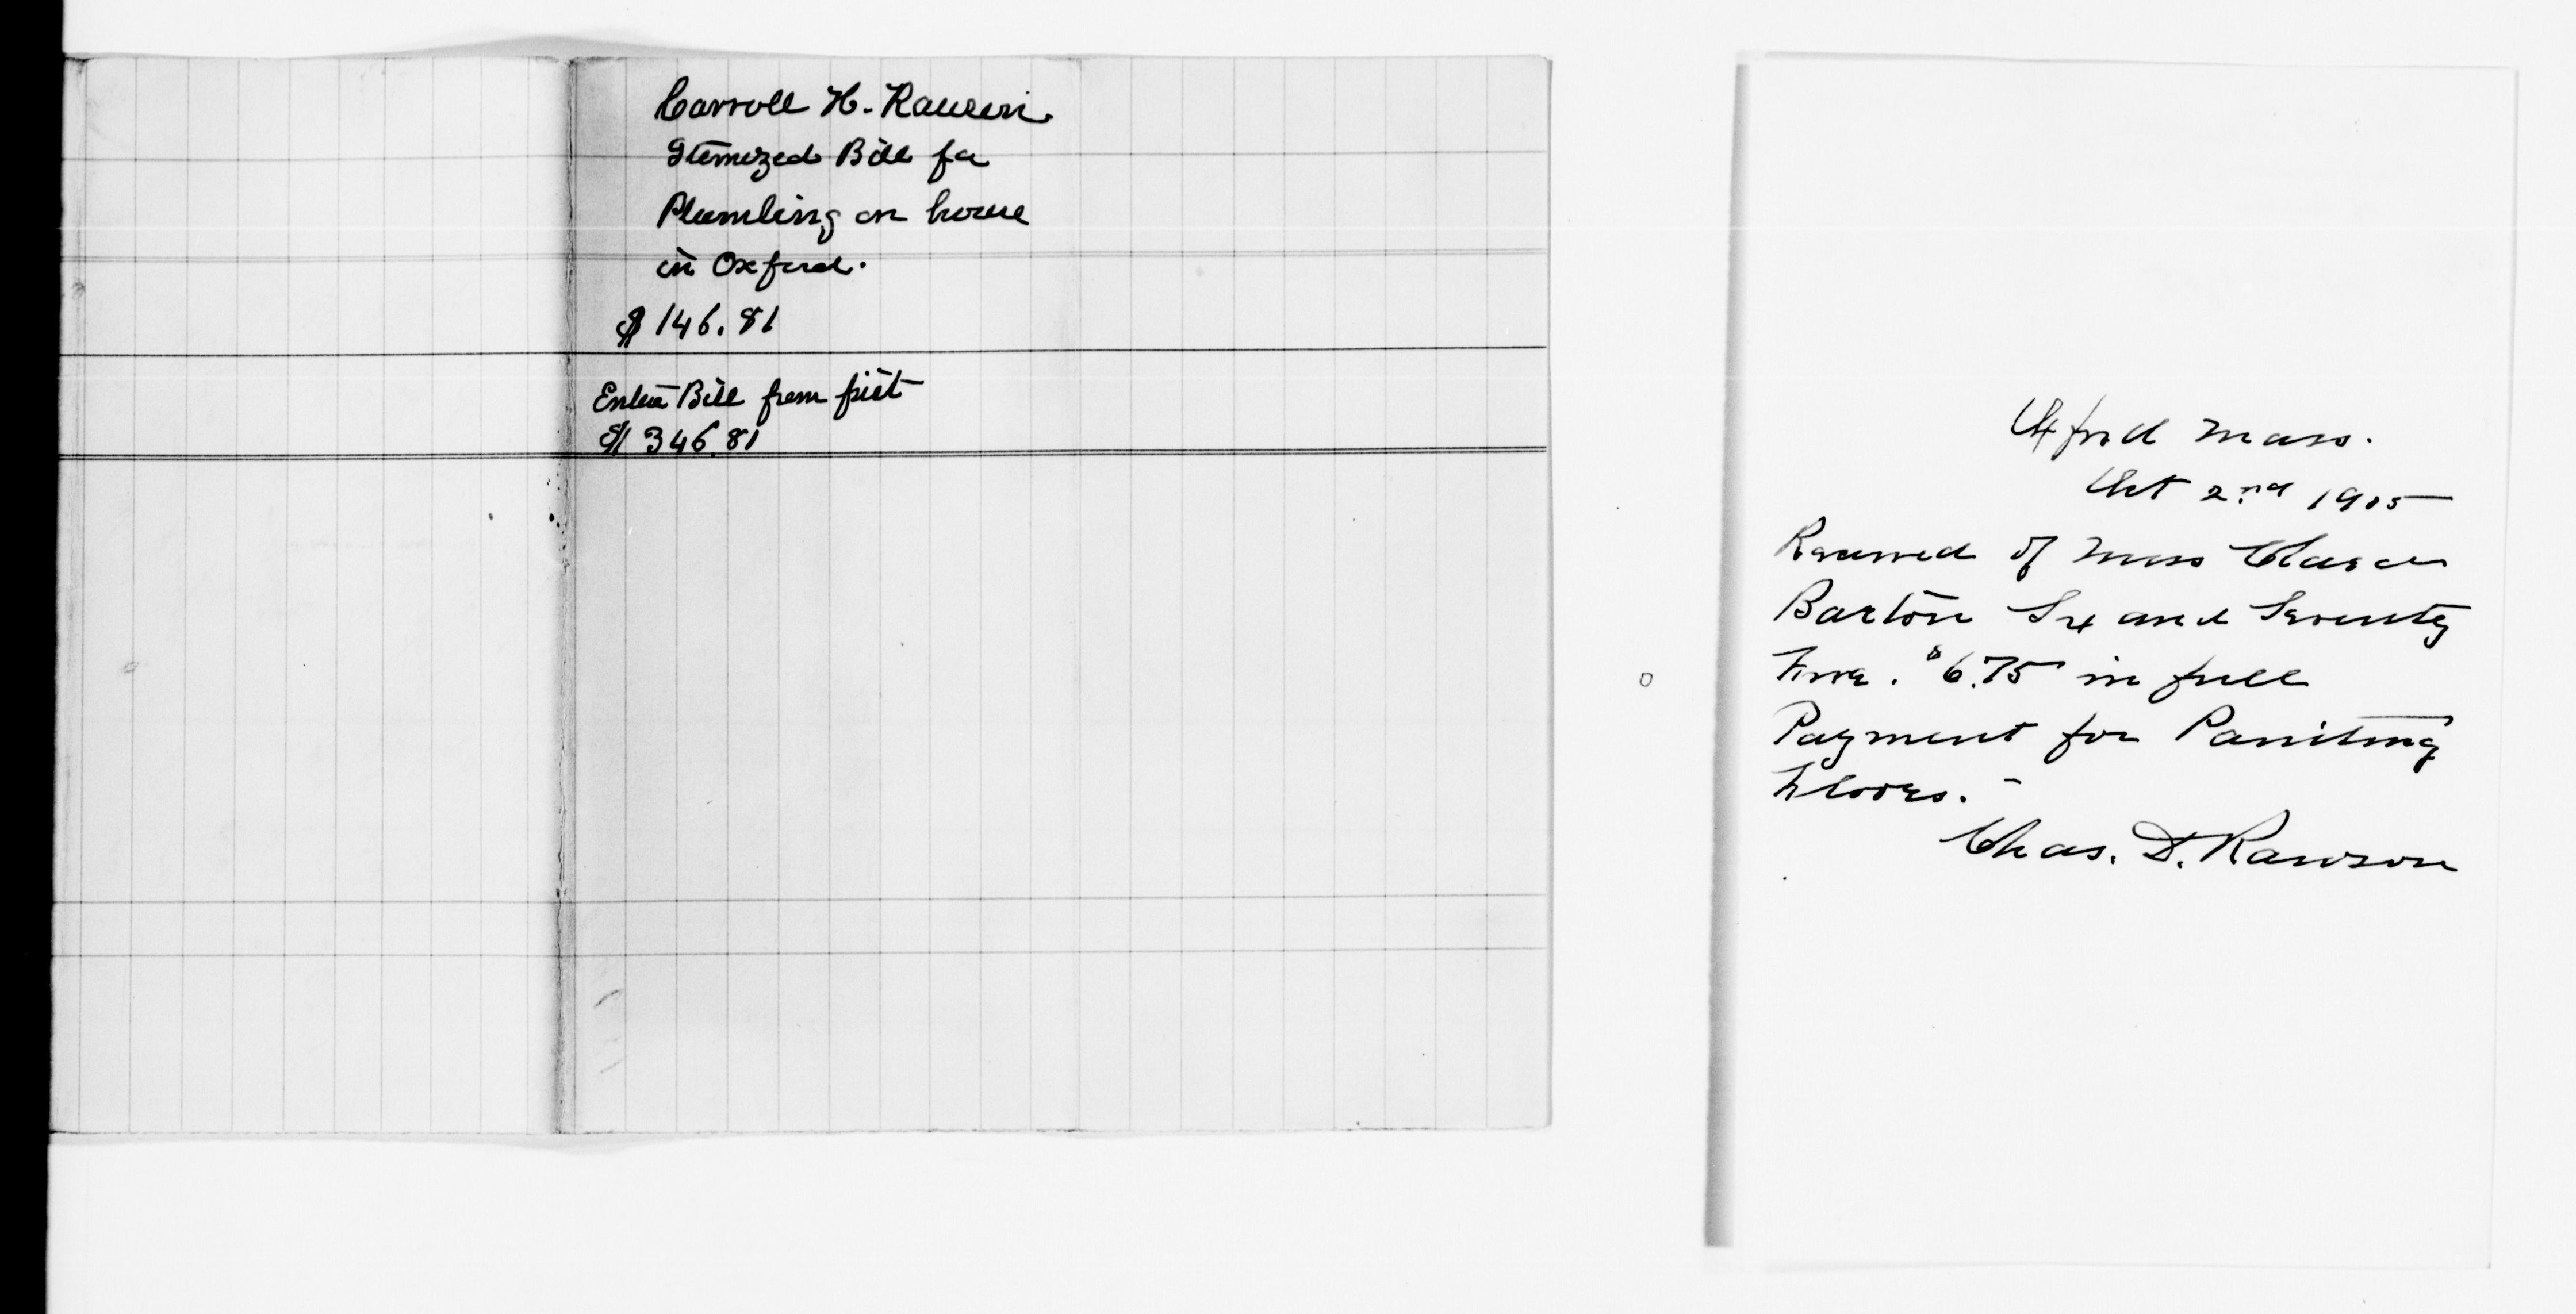 Carroll H. Rawson.
Itemized Bill for
Plumbing on house
in Oxford.
$ 146.81
Entire Bill from first
$ 346.81
Oxford Mass.
Oct 2nd 1905
Received of Miss Clara
Barton Six and Seventy
Five. $6.75 in full
Payment for Painting
Floors. -
Chas. D. Rawson